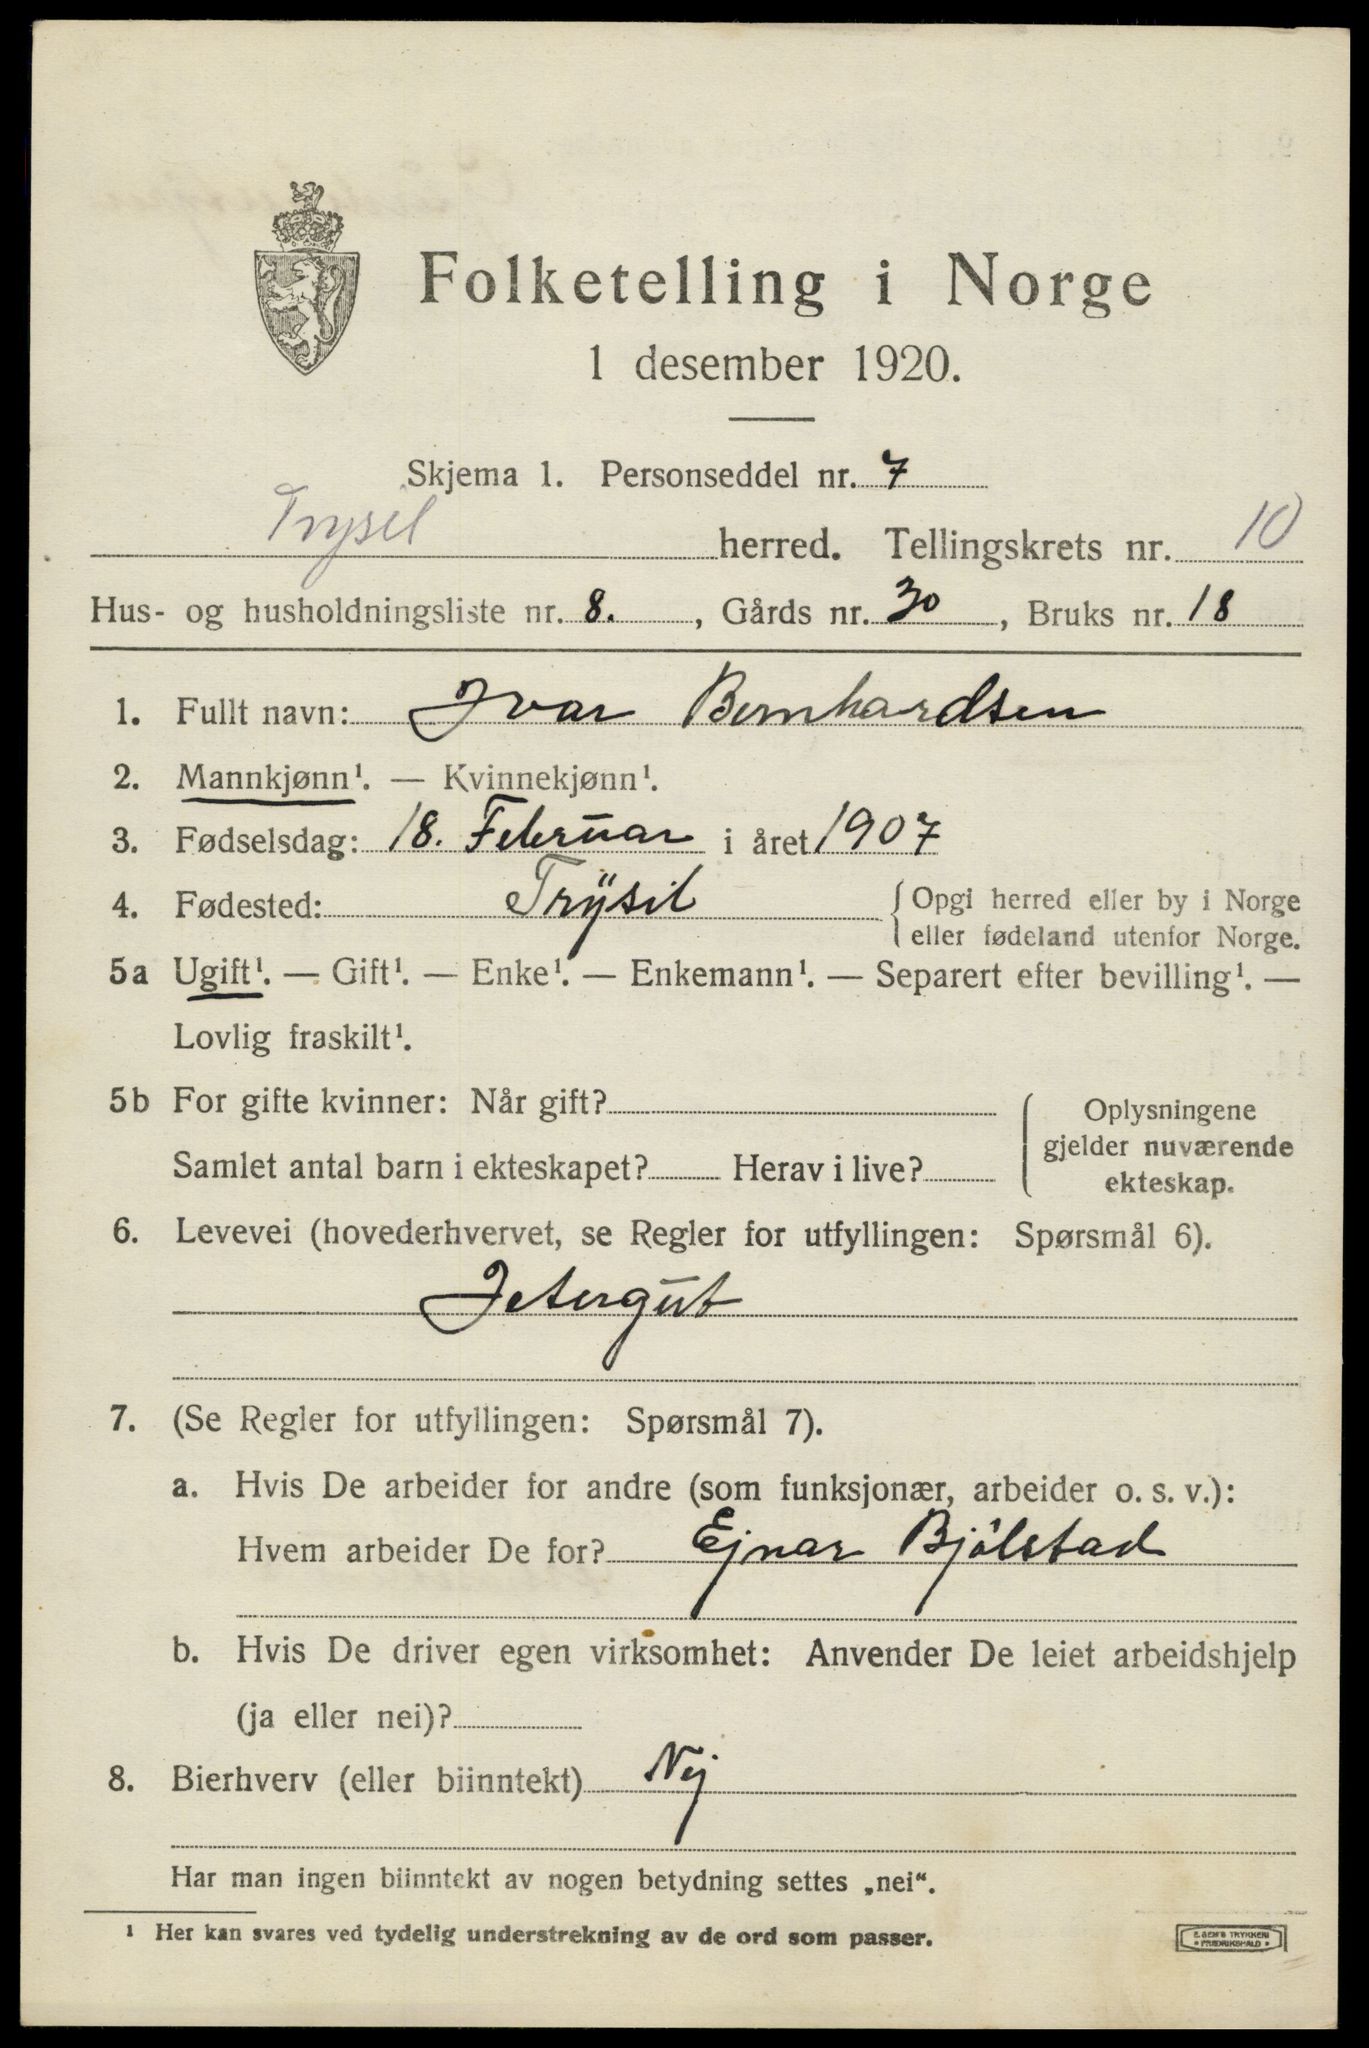 Folketelling i Norge
1 desember 1920.
Skjema 1. Personseddel nr. 7
Trysil herred. Tellingskrets nr. 10
Hus- og husholdningsliste nr. 8. , Gårds nr. 30 , Bruks nr. 18
1. Fullt navn: Ivar Bernhardsen
2. Mannkjønn¹. — Kvinnekjønn¹.
3. Fødselsdag: 18. Februar i året 1907
4. Fødested: Trysil { Opgi herred eller by i Norge
eller fødeland utenfor Norge.
5a Ugift¹. — Gift¹. — Enke¹. — Enkemann¹. — Separert efter bevilling¹. —
Lovlig fraskilt¹.
5b For gifte kvinner: Når gift?
Samlet antal barn i ekteskapet? Herav i live?
Oplysningene
gjelder nuværende
ekteskap.
6. Levevei (hovederhvervet, se Regler for utfyllingen: Spørsmål 6).
Jetergut
7. (Se Regler for utfyllingen: Spørsmål 7).
a. Hvis De arbeider for andre (som funksjonær, arbeider o. s. v.):
Hvem arbeider De for? Ejnar Bjölstad
b. Hvis De driver egen virksomhet: Anvender De leiet arbeidshjelp
(ja eller nei)?
8. Bierhverv (eller biinntekt) Nej
Har man ingen biinntekt av nogen betydning settes „nei“.
¹ Her kan svares ved tydelig understrekning av de ord som passer.
E. SEM'S TRYKKERI
• FREDRIKSHALD •